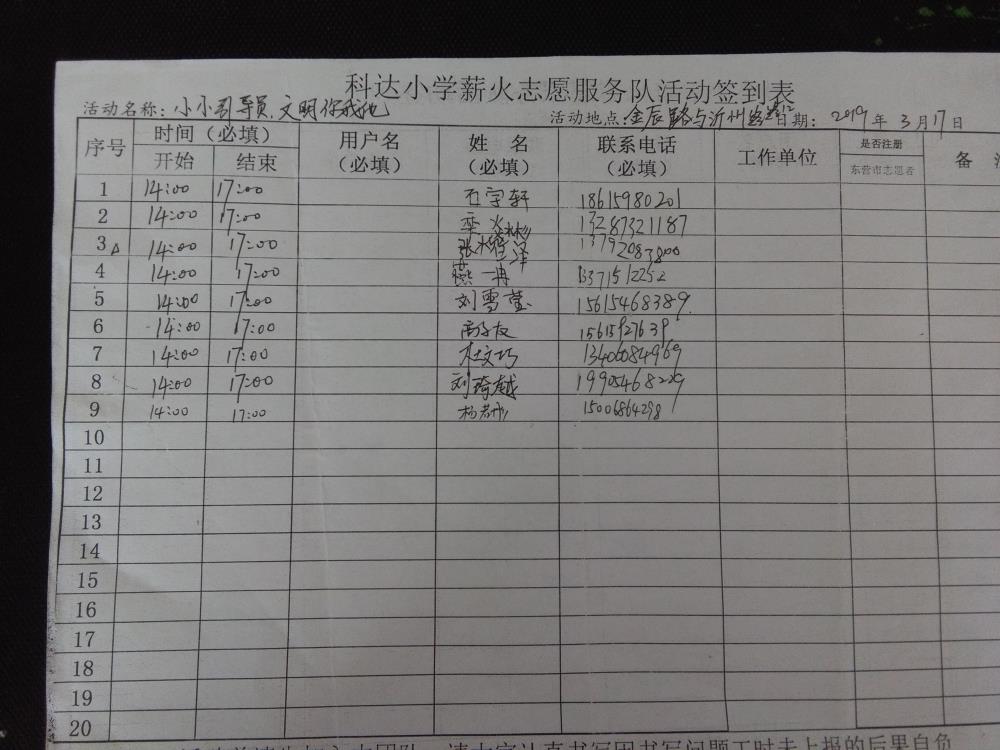 科达小学薪火志愿服务队活动签到表
活动名称：小小引导员 文明你我他
活动地点：金辰路与沂州路 日期：2019年3月17日
序号 时间（必填） 用户名（必填） 姓 名（必填） 联系电话（必填） 工作单位 是否注册 东营市志愿者 备
开始 结束
1 14:00 17:00 石宇轩 18615980201
2 14:00 17:00 栾 13287321187
3 14:00 17:00 张 泽 13792083800
4 14:00 17:00 燕一冉 13371512252
5 14:00 17:00 刘雪莹 15615468389
6 14:00 17:00 15615927639
7 14:00 17:00 杜文巧 13406084969
8 14:00 17:00 刘琦越 19905468229
9 14:00 17:00 杨若彤 15006864298
10
11
12
13
14
15
16
17
18
19
20